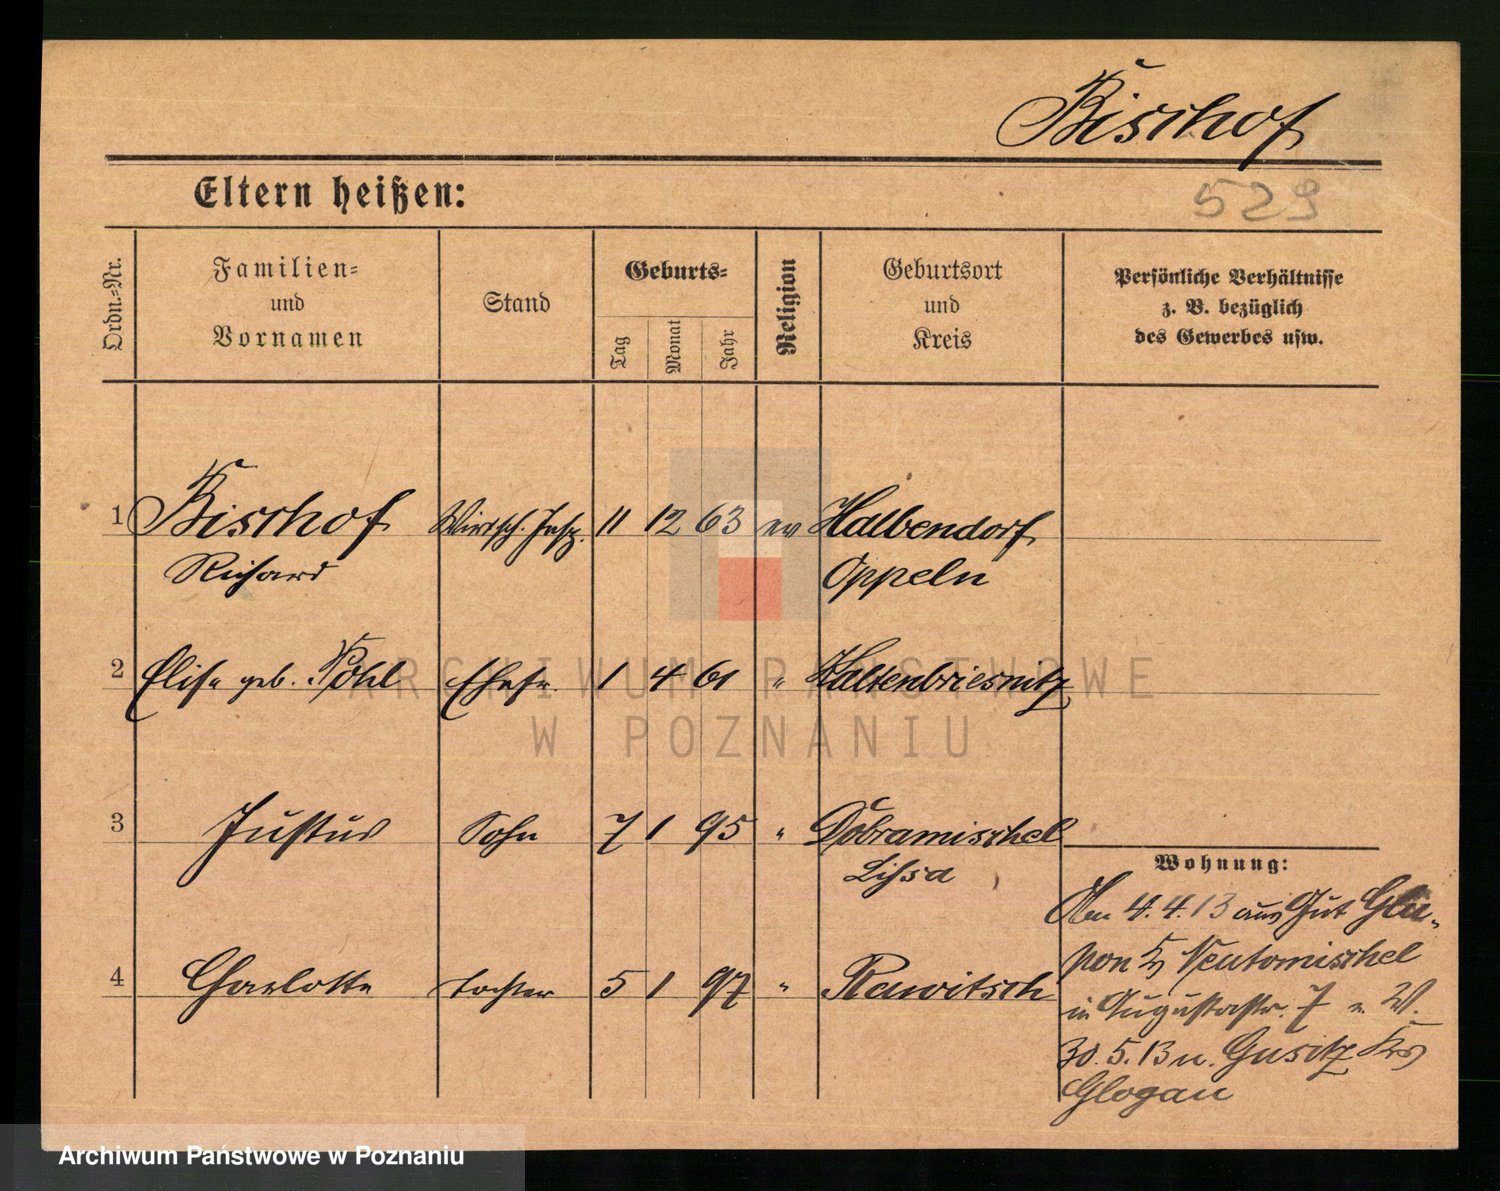 Bischof
Eltern heißen:
529
Ordn.=Nr.
Familien=
und
Vornamen
Stand
Geburts=
Tag
Monat
Jahr
Religion
Geburtsort
und
Kreis
Persönliche Verhältnisse
z. B. bezüglich
des Gewerbes usw.
1 Bischof Wirtsch. Insp. 11 12 63 ev Halbendorf
Richard Oppeln
2 Elise geb. Pohl Ehefr. 1 4 61 " Kaltenbriesnitz
3 Justus Sohn 7 1 95 " Dobramischel
Lissa
4 Charlotte Tochter 5 1 97 " Rawitsch
Wohnung:
Am 4.4.13 aus Gut Glu-
pon Kr Neutomischel
in Augustastr. 7 n. W.
30.5.13 n. Gusitz Krs
Glogau
ARCHIWUM PAŃSTWOWE
W POZNANIU
Archiwum Państwowe w Poznaniu